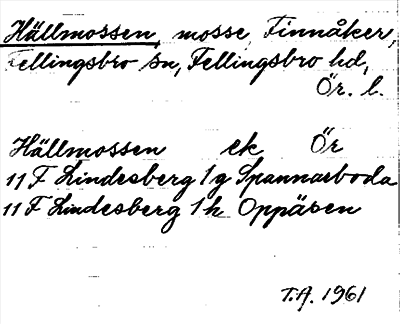 Hällmossen, mosse, Finnåker,
Fellingsbro sn, Fellingsbro hd,
Ör. l.
Hällmossen ek Ör
11 F Lindesberg 1g Spannarboda
11 F Lindesberg 1h Oppåsen
T.A. 1961